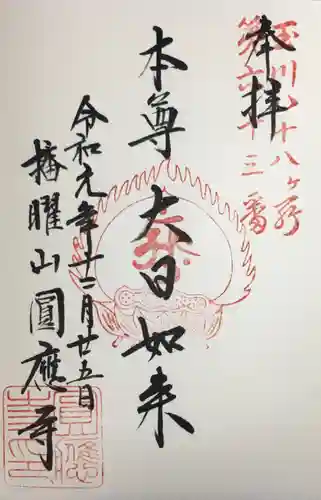 奉拝
玉川八十八ヶ所
第六十三番
本尊 大日如来
令和元年十二月廿五日
播曜山圓應寺